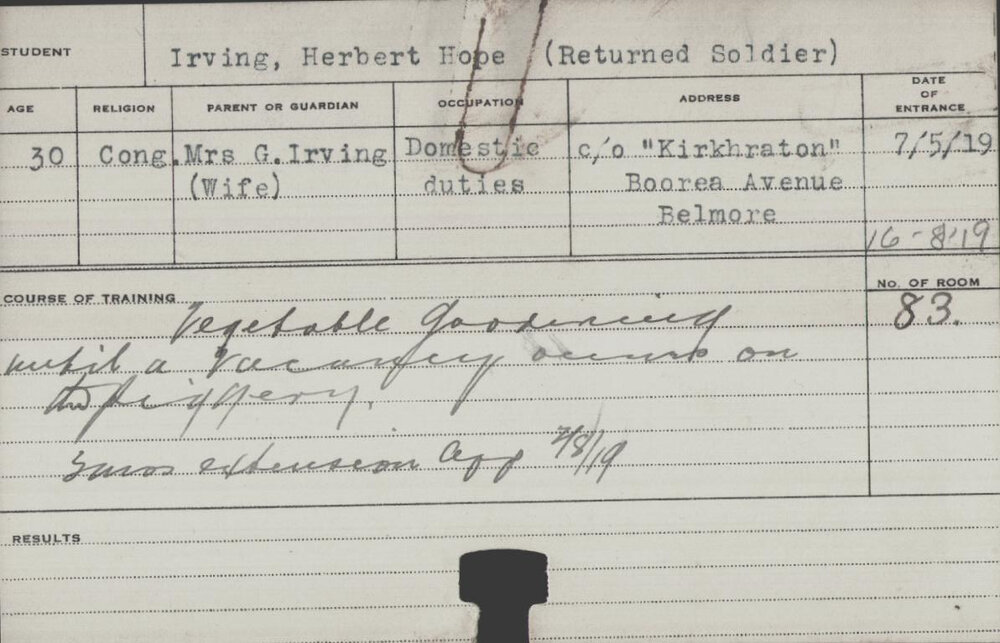 STUDENT Irving, Herbert Hope (Returned Soldier)
AGE RELIGION PARENT OR GUARDIAN OCCUPATION ADDRESS DATE OF ENTRANCE
30 Cong. Mrs G. Irving Domestic c/o "Kirkhraton" 7/5/19
(Wife) duties Boorea Avenue
Belmore
16-8-19
COURSE OF TRAINING No. OF ROOM
Vegetable Gardening 83.
until a vacancy occurs on
the piggery.
3 mos extension app /8/19
RESULTS